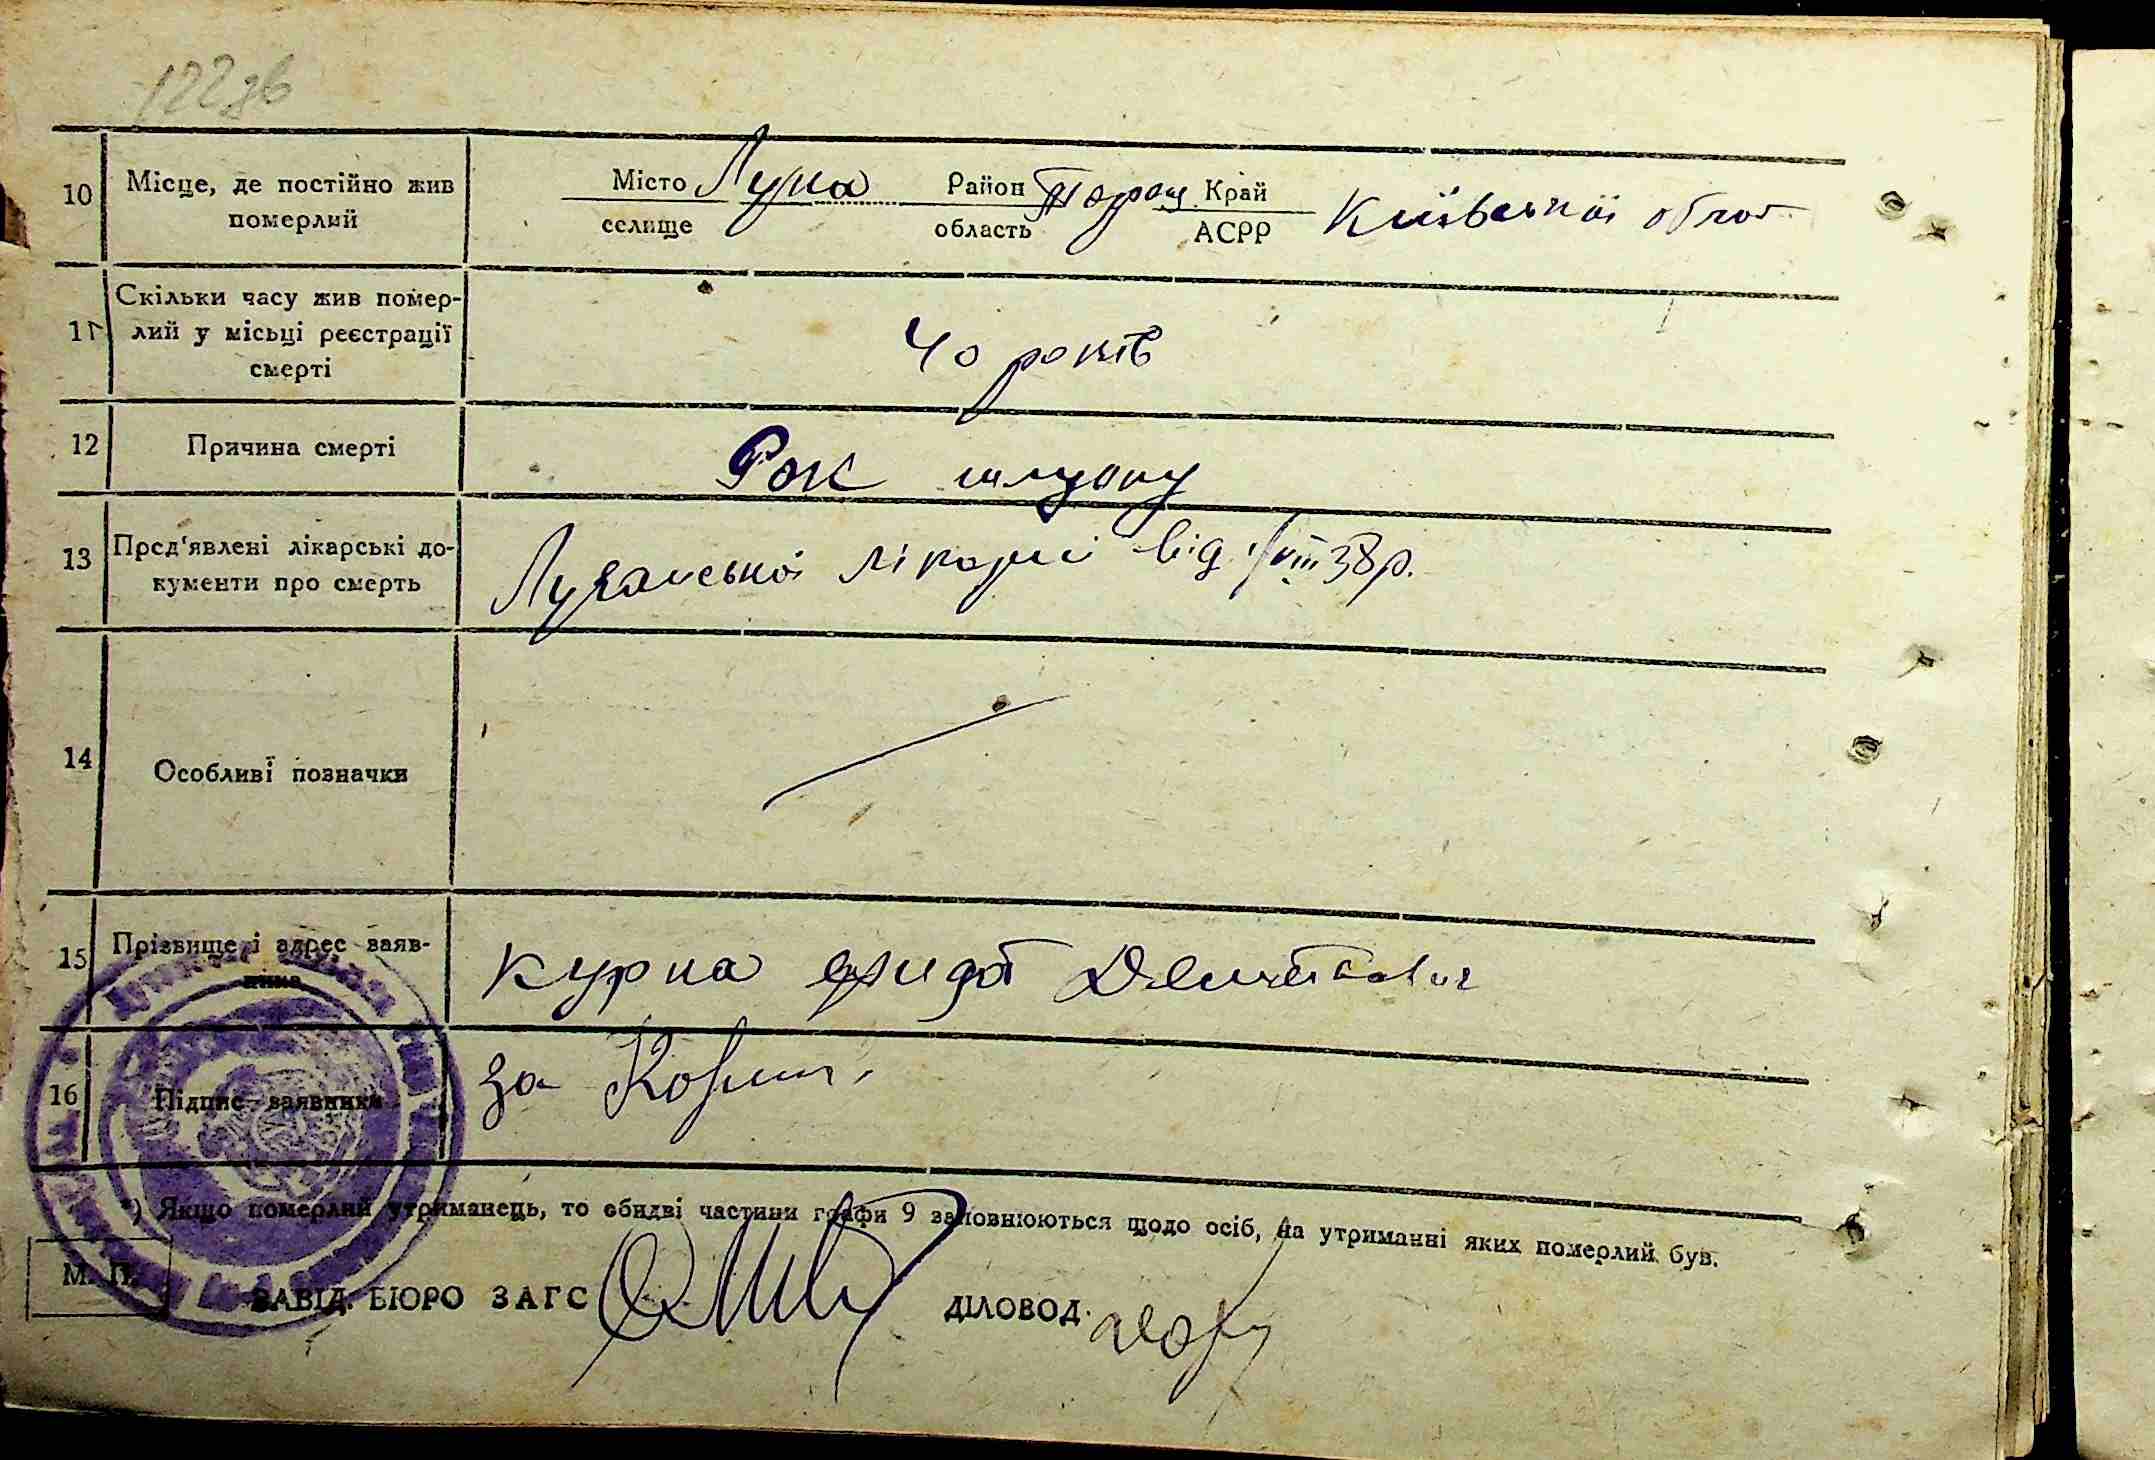 122 зв
10 Місце, де постійно жив померлий
Місто Лука Район Таращ. Край Київської облас
селище область АСРР
11 Скільки часу жив помер-
лий у місьці реєстрації
смерті
40 років
12 Причина смерті Рок шлунку
13 Пред'явлені лікарські до-
кументи про смерть
Лучанської лікарні від VIII 38 р.
14 Особливі позначки
15 Прізвище і адрес заяв-
ника
Курка Демидович
16 Підпис заявника за
*) Якщо померлий утриманець, то обидві частини графи 9 заповнюються щодо осіб, на утриманні яких померлий був.
М. П.
ЗАВІД. БЮРО ЗАГС ДІЛОВОД.